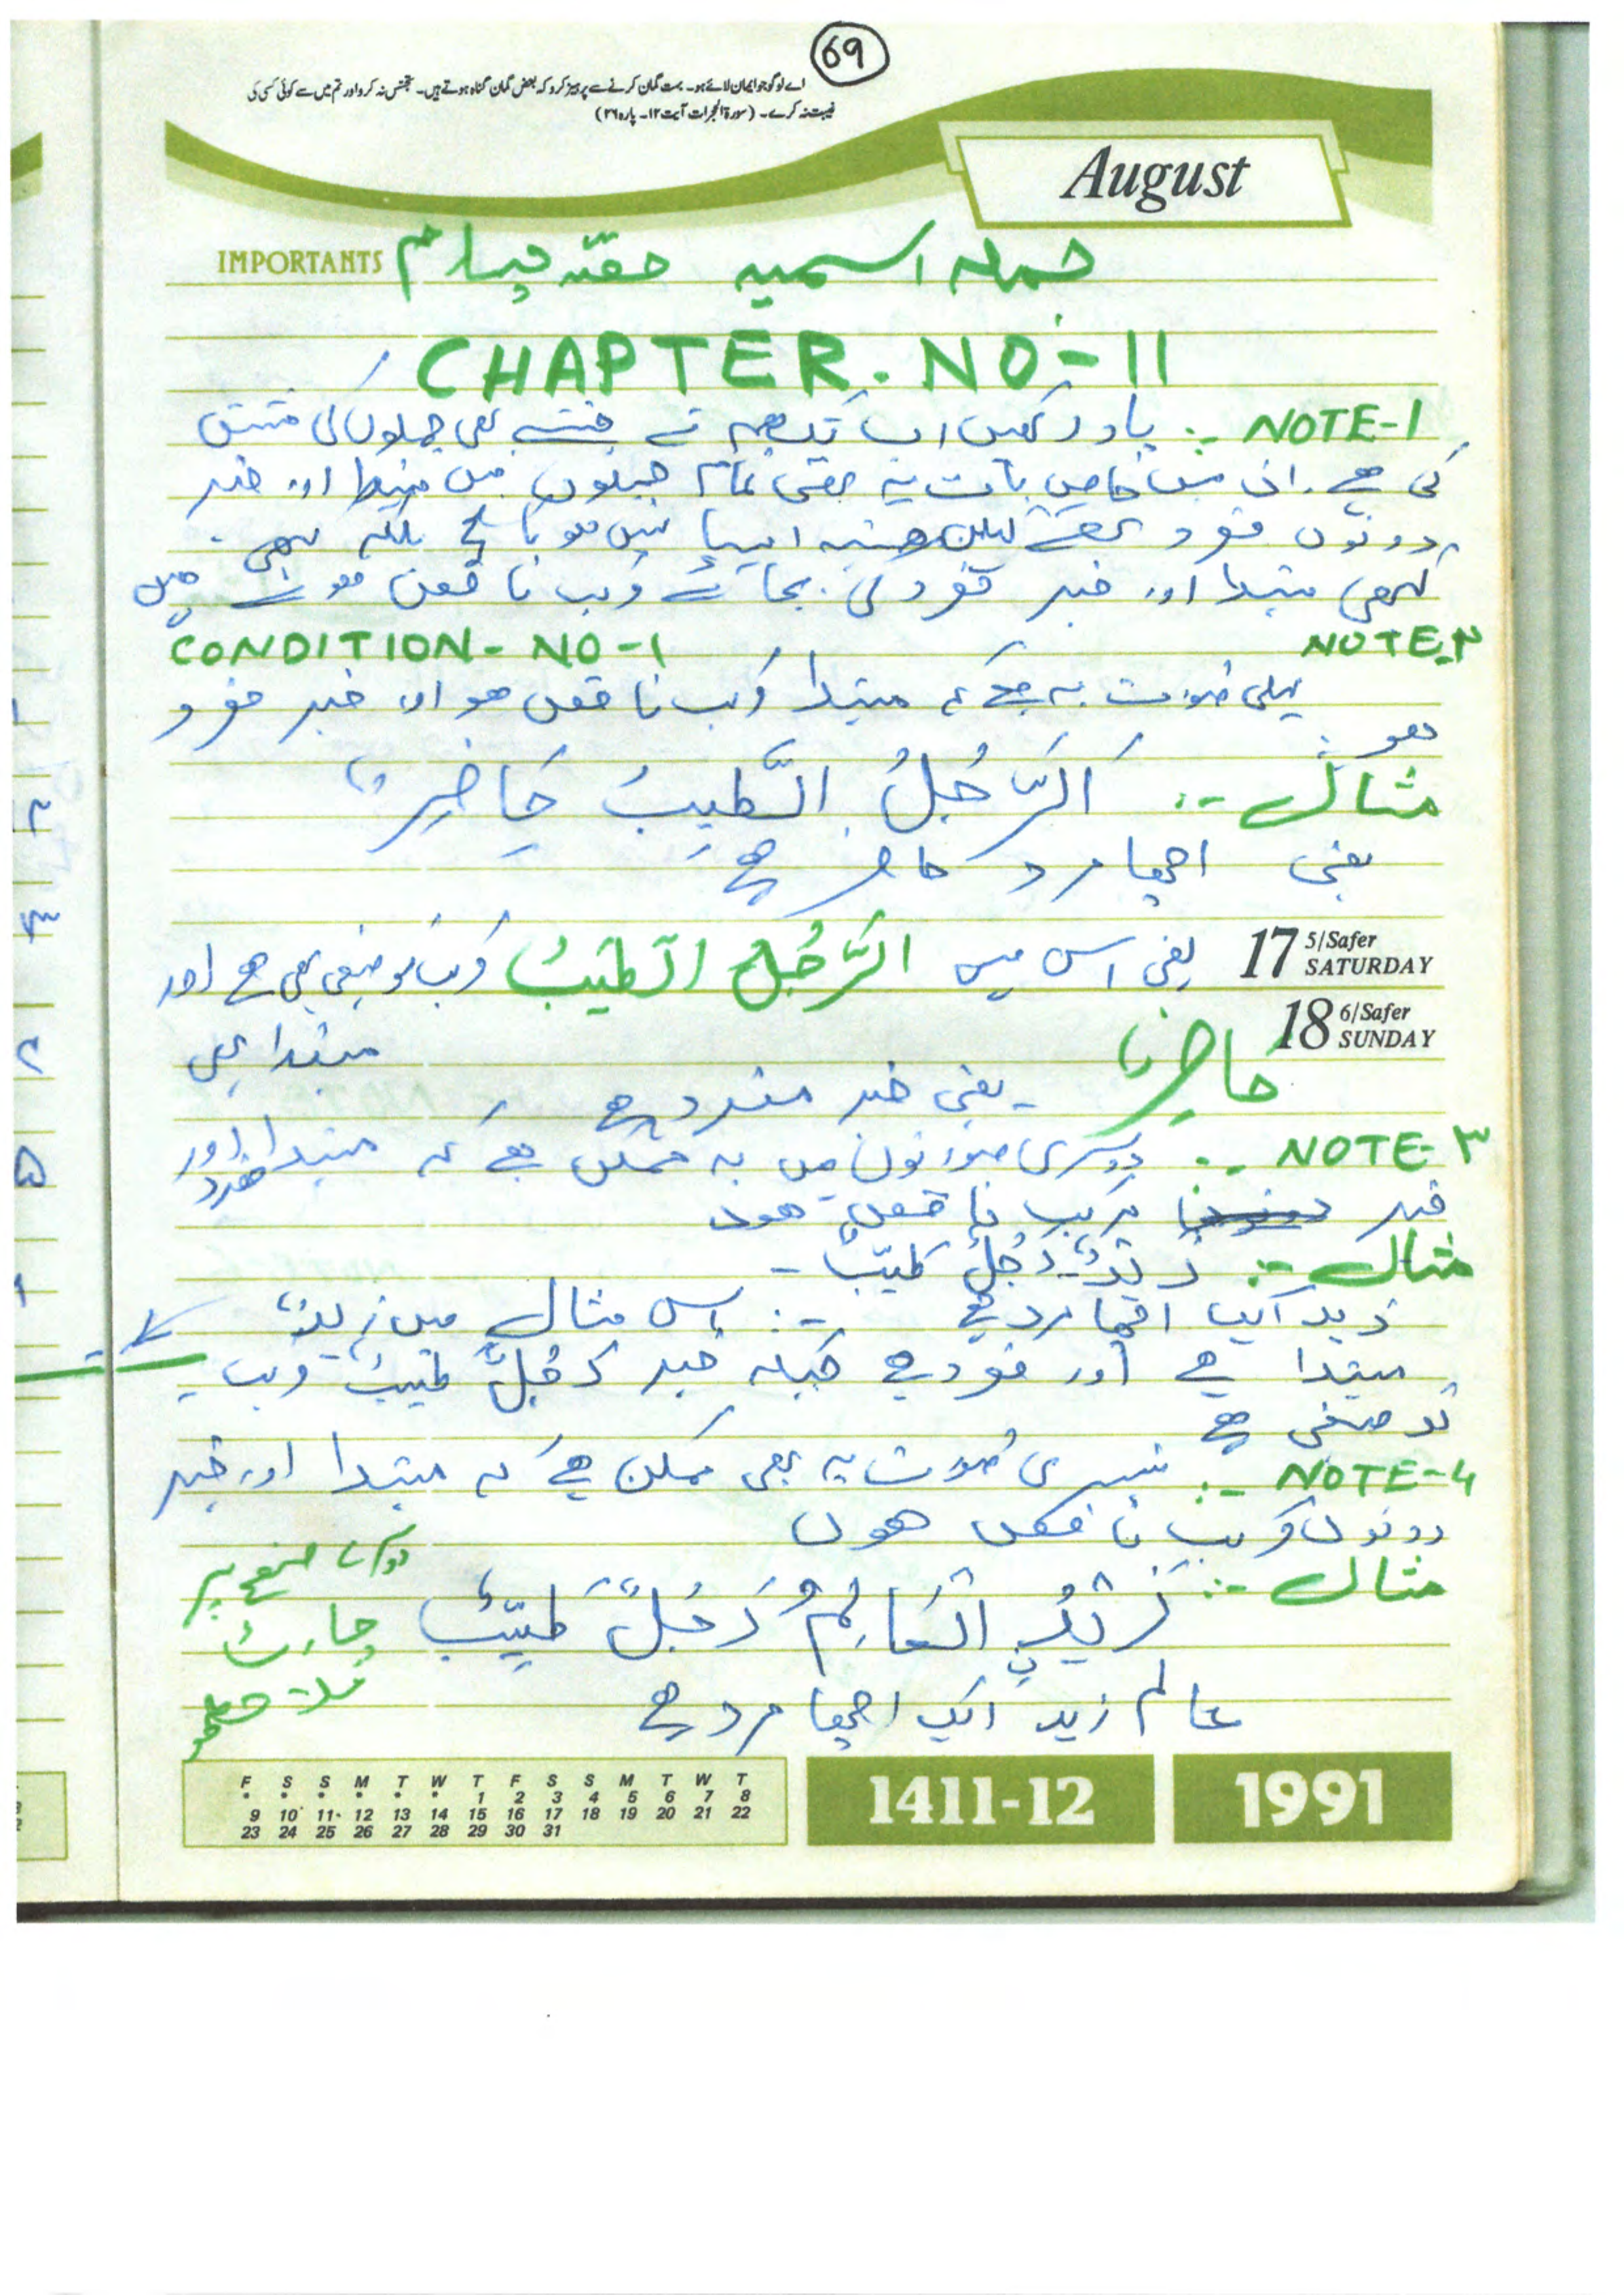 69
اے لوگو جو ایمان لائے ہو۔ بہت گمان کرنے سے پرہیز کرو کہ بعض گمان گناہ ہوتے ہیں۔ تجسس نہ کرو اور تم میں سے کوئی کسی کی
غیبت نہ کرے۔ (سورۃ الحجرات آیت ۱۲۔ پارہ ۲۶)
August
IMPORTANTS
جملہ اسمیہ حصّہ چہارم
CHAPTER. NO-11
NOTE-1 :- یاد رکھیں اب تک ہم نے جتنے بھی جملوں کی مشق
کی ہے۔ ان میں خاص بات یہ تھی تمام جملوں میں مبتدا اور خبر
دونوں مفرد تھے لیکن ہمیشہ ایسا نہیں ہوتا ہے بلکہ کبھی
کبھی مبتدا اور خبر مفرد کی بجائے مرکب ناقص ہوتے ہیں
NOTE-۲ CONDITION-NO-1
پہلی صورت یہ ہے کہ مبتدا مرکب ناقص ہو اور خبر مفرد
ہو
مثال :- اَلرَّجُلُ الطَّیِبُ حَاضِرٌ
یعنی اچھا مرد حاضر ہے
17 5/Safer SATURDAY
یعنی اس میں الرَّجُلُ الطَّیِّبُ مرکب توصیفی بھی ہے اور
18 6/Safer SUNDAY
مبتدا بھی
حاضرٌ یعنی خبر مفرد ہے
NOTE-۳ :- دوسری صورتوں میں یہ ممکن ہے کہ مبتدا مفرد اور
خبر مرکب ناقص ہوں
مثال :- زیدٌ رَجُلٌ طَیّبٌ -
زید ایک اچھا مرد ہے :- اس مثال میں زیدٌ
مبتدا ہے اور مفرد ہے جبکہ خبر رَجُلٌ طَیّبٌ مرکب
توصیفی ہے
NOTE-4 :- تیسری صورت یہ بھی ممکن ہے کہ مبتدا اور خبر
دونوں مرکب ناقص ہوں
مثال :- زَیْدُ العَالِمُ رَجُلٌ طَیّبٌ
صفحہ پر
چارٹ
ملاحظہ
عالم زید ایک اچھا مرد ہے
F S S M T W T F S S M T W T
* * * * * * 1 2 3 4 5 6 7 8
9 10 11 12 13 14 15 16 17 18 19 20 21 22
23 24 25 26 27 28 29 30 31
1411-12
1991